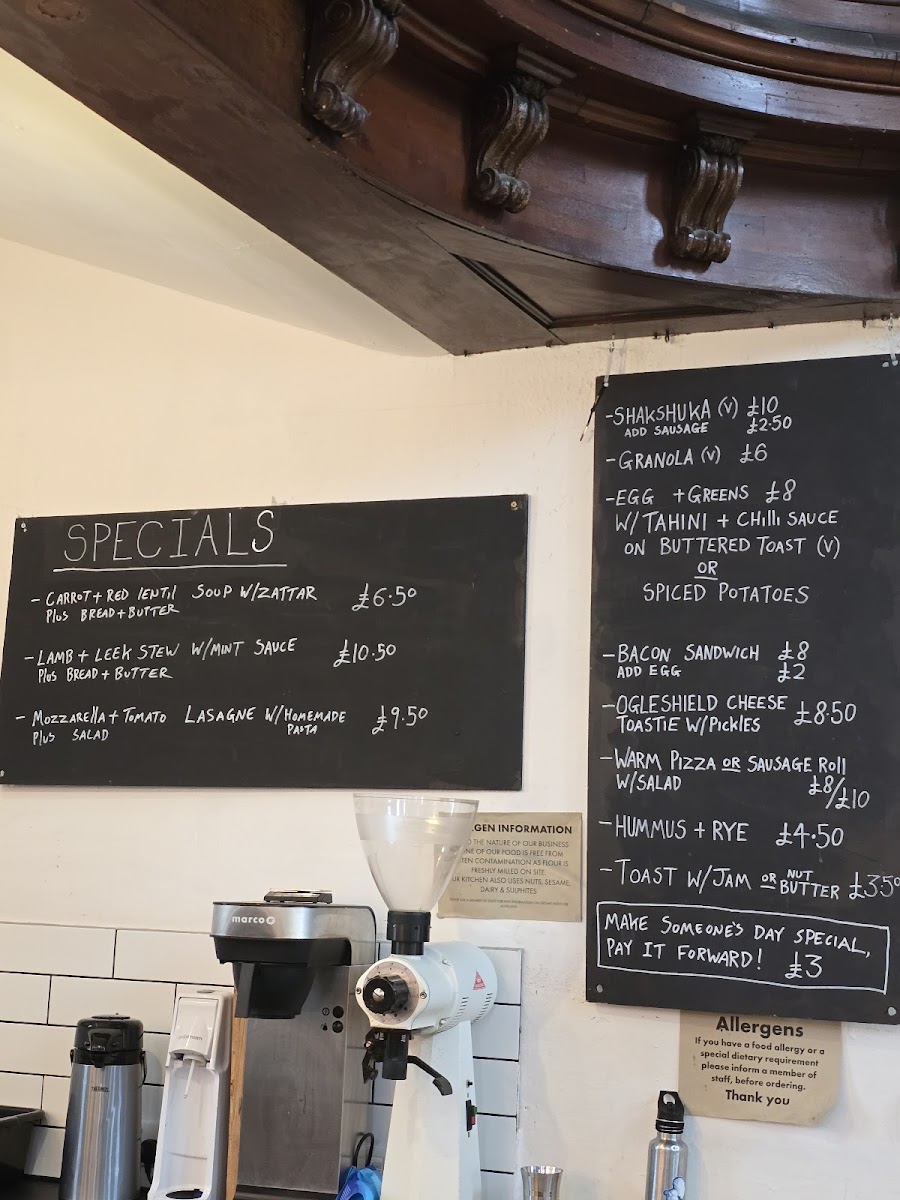 SPECIALS
- CARROT + RED lENTil SOUP W/ZATTAR £6.50
Plus BREAD + BUTTER
- LAMB + LEEK STEW W/MINT SAUCE £10.50
Plus BREAD + BUTTER
- MOZZARELLA + TOMATO LASAGNE W/HOMEMADE £9.50
PASTA
Plus SALAD
- SHAKSHUKA (V) £10
ADD SAUSAGE £2.50
- GRANOLA (V) £6
- EGG + GREENS £8
W/TAHINI + CHilli SAUCE
ON BUTTERED TOAST (V)
OR
SPICED POTATOES
- BACON SANDWICH £8
ADD EGG £2
- OGLESHIELD CHEESE £8.50
TOASTIE W/PICKLES
- WARM PIZZA OR SAUSAGE Roll
W/SALAD £8/£10
- HUMMUS + RYE £4.50
- TOAST W/JAM OR NUT
BUTTER £3.50
MAKE SOMEONE'S DAY SPECIAL,
PAY IT FORWARD! £3
INFORMATION
THE NATURE OF OUR BUSINESS
OF OUR FOOD IS FREE FROM
CONTAMINATION AS FLOUR IS
FRESHLY MILLED ON SITE.
KITCHEN ALSO USES NUTS, SESAME,
DAIRY & SULPHITES
Allergens
If you have a food allergy or a
special dietary requirement
please inform a member of
staff, before ordering.
Thank you
marco